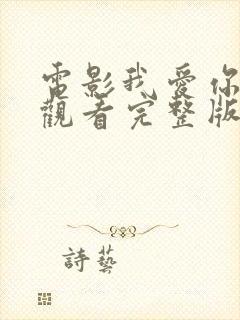 電影我愛你
觀看完整版
詩藝